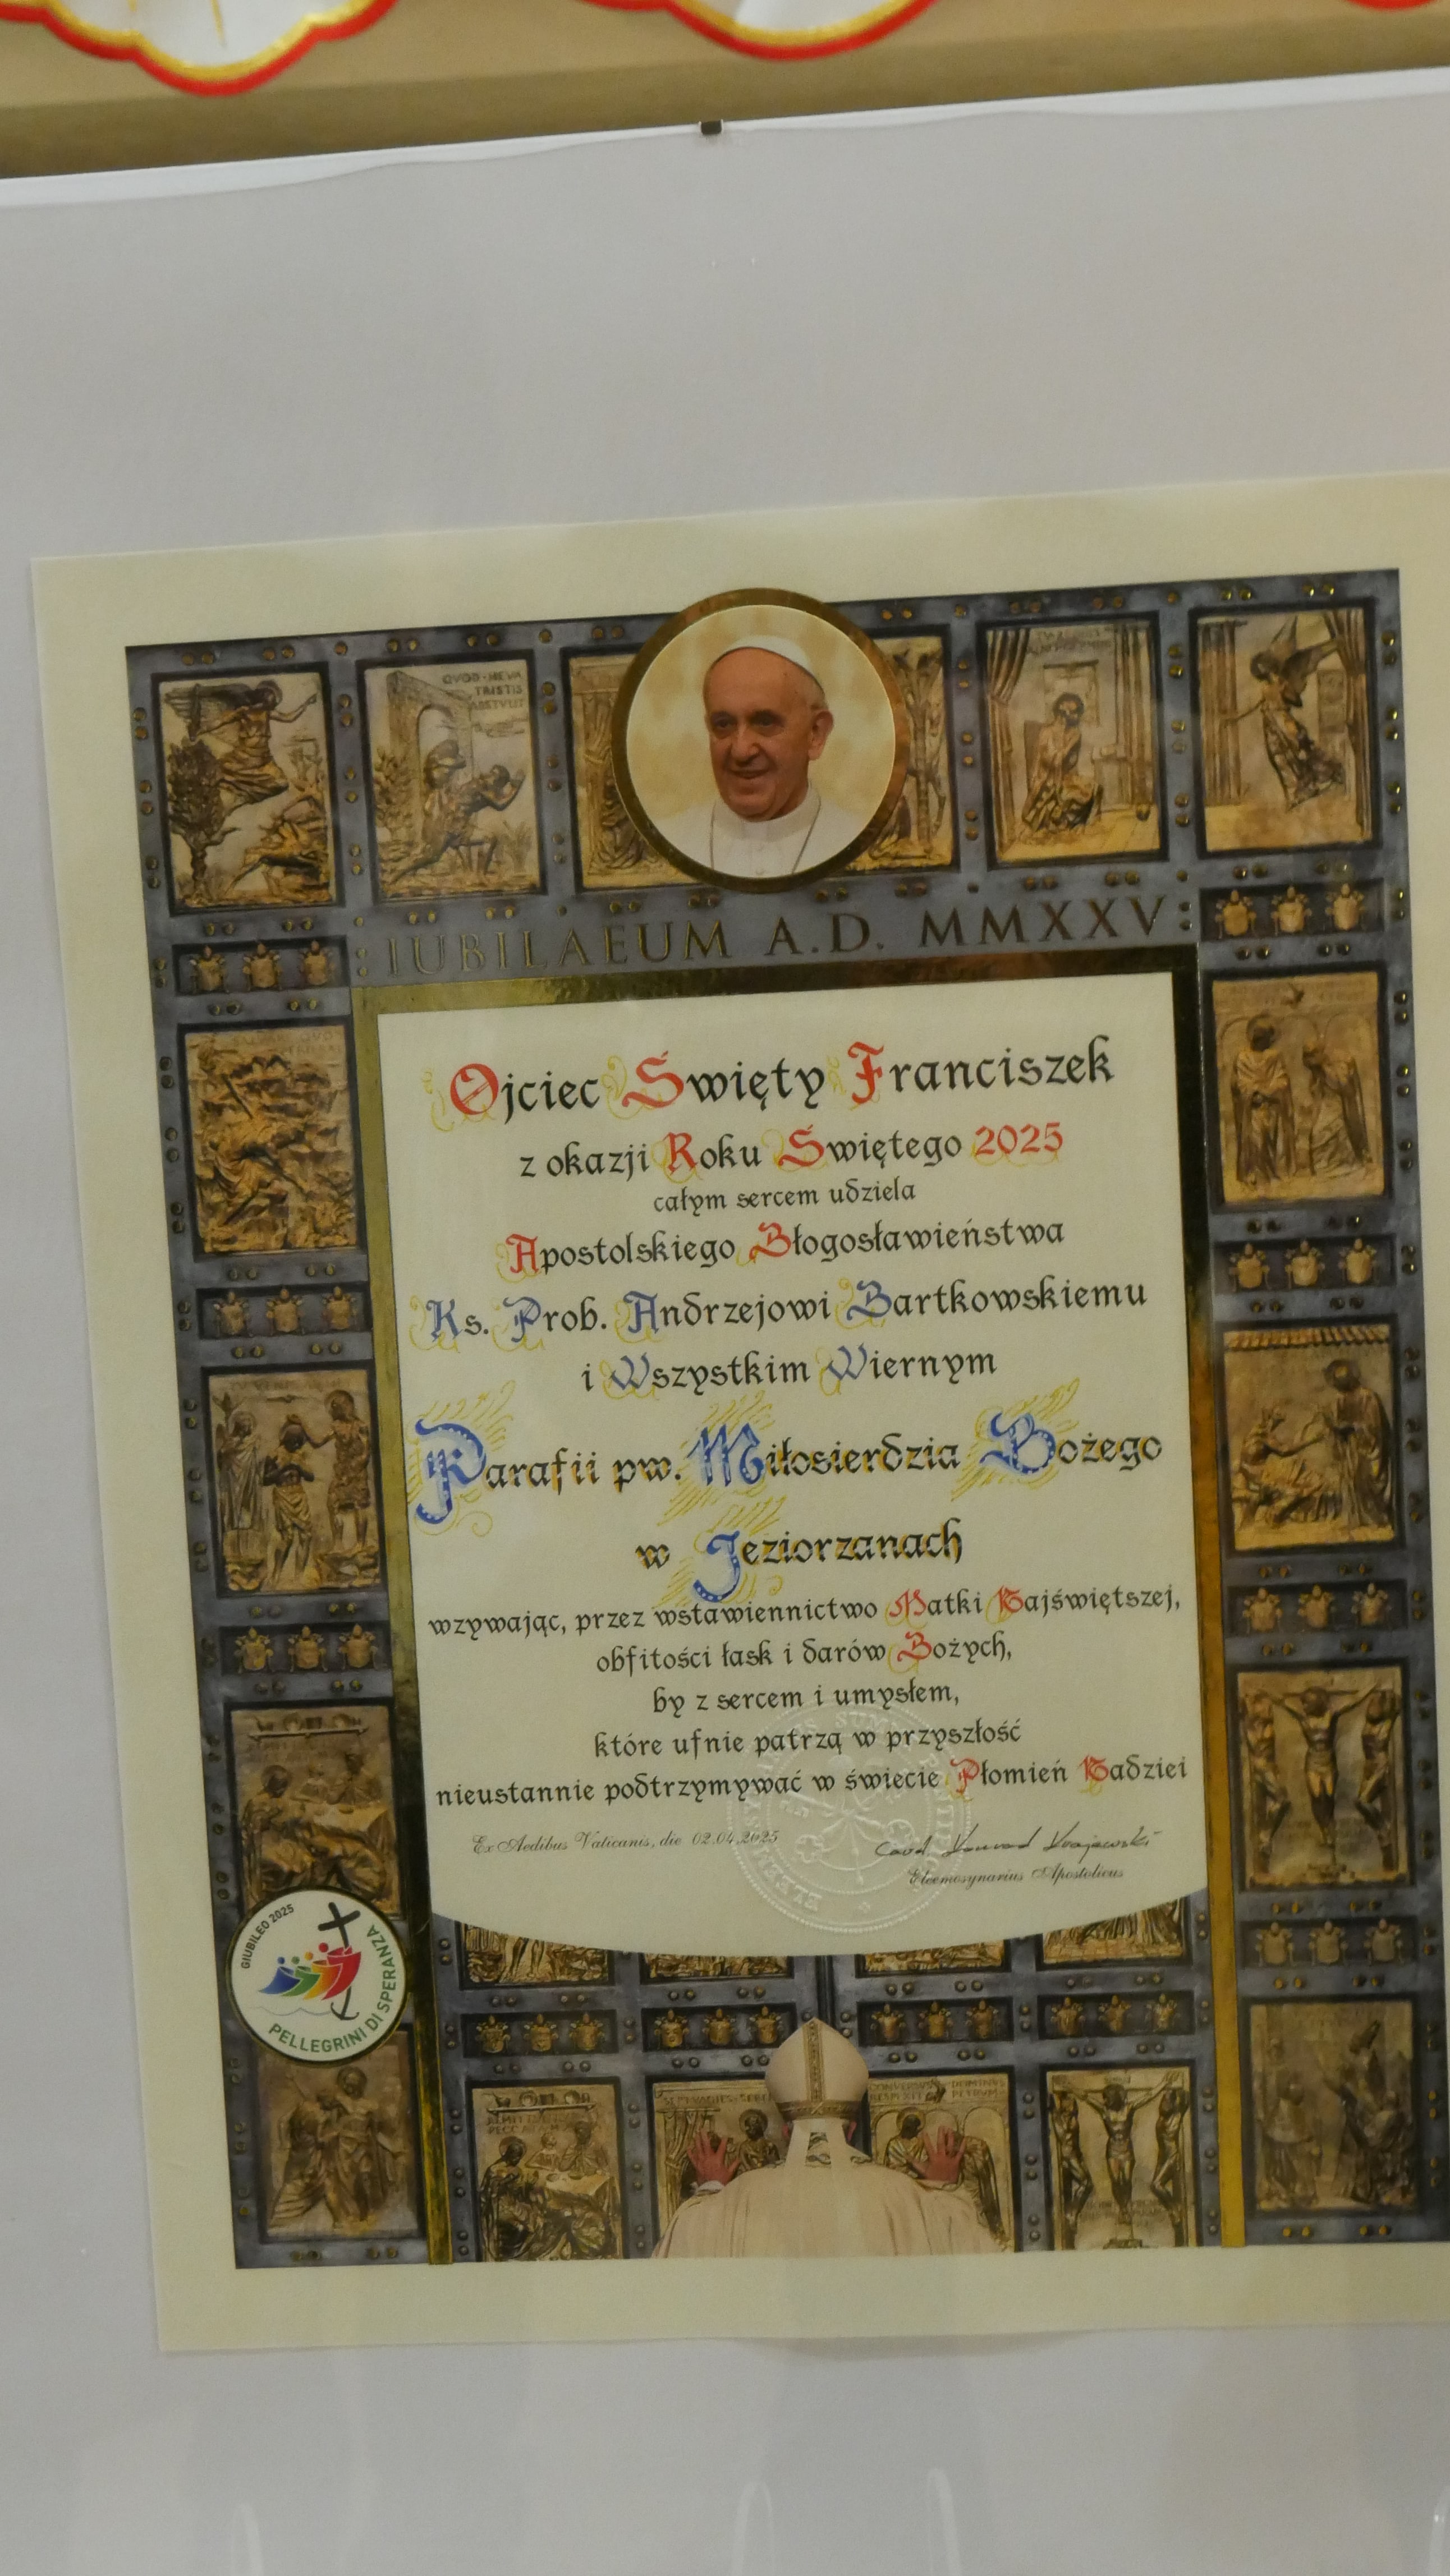 QVOD · HEVA
TRISTIS
ABSTVLIT
IUBILAEUM A.D. MMXXV
Ojciec Święty Franciszek
z okazji Roku Świętego 2025
całym sercem udziela
Apostolskiego Błogosławieństwa
Ks. Prob. Andrzejowi Bartkowskiemu
i Wszystkim Wiernym
Parafii pw. Miłosierdzia Bożego
w Jeziorzanach
wzywając, przez wstawiennictwo Matki Najświętszej,
obfitości łask i darów Bożych,
by z sercem i umysłem,
które ufnie patrzą w przyszłość
nieustannie podtrzymywać w świecie Płomień Nadziei
Ex Aedibus Vaticanis, die 02.04.2025
Card Konrad Krajewski
Eleemosynarius Apostolicus
GIUBILEO 2025
PELLEGRINI DI SPERANZA